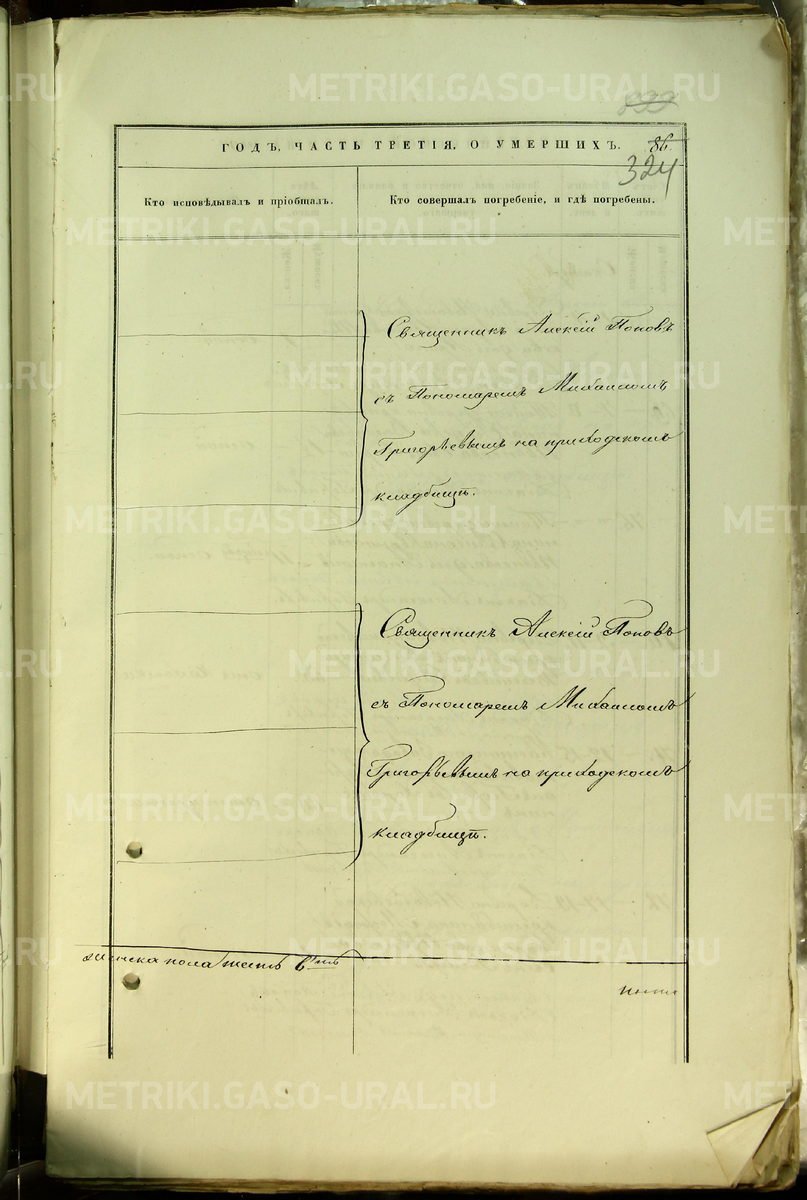 METRIKI.GASO-URAL.RU
899
ГОДЪ, ЧАСТЬ ТРЕТІЯ, О УМЕРШИХЪ.
86.
324
Кто исповѣдывалъ и пріобщалъ.
Кто совершалъ погребеніе, и гдѣ погребены.
Священникъ Алексій Поповъ
съ Пономаремъ Михаиломъ
Григорьевымъ на приходскомъ
кладбищѣ.
Священникъ Алексій Поповъ
съ Пономаремъ Михаиломъ
Григорьевымъ на приходскомъ
кладбищѣ.
женска пола